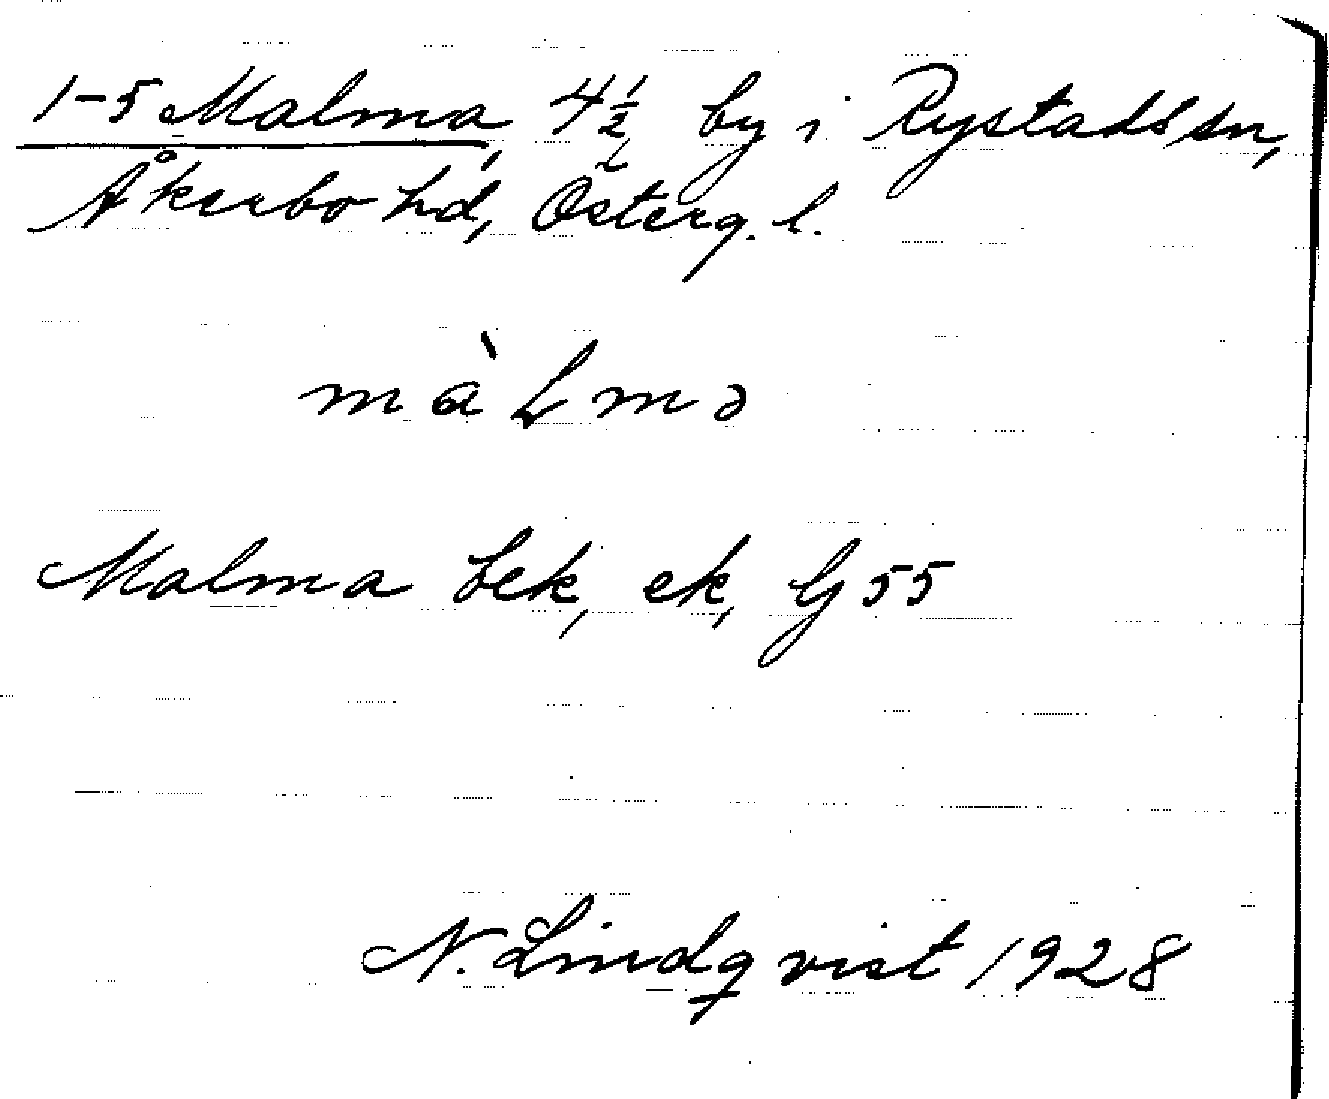 1-5 Malma, 4 1/2 by i Rystads sn,
Åkerbo hd, Österg. l.
màLmə
Malma Lek, ek, Gj 55
N. Lindqvist 1928